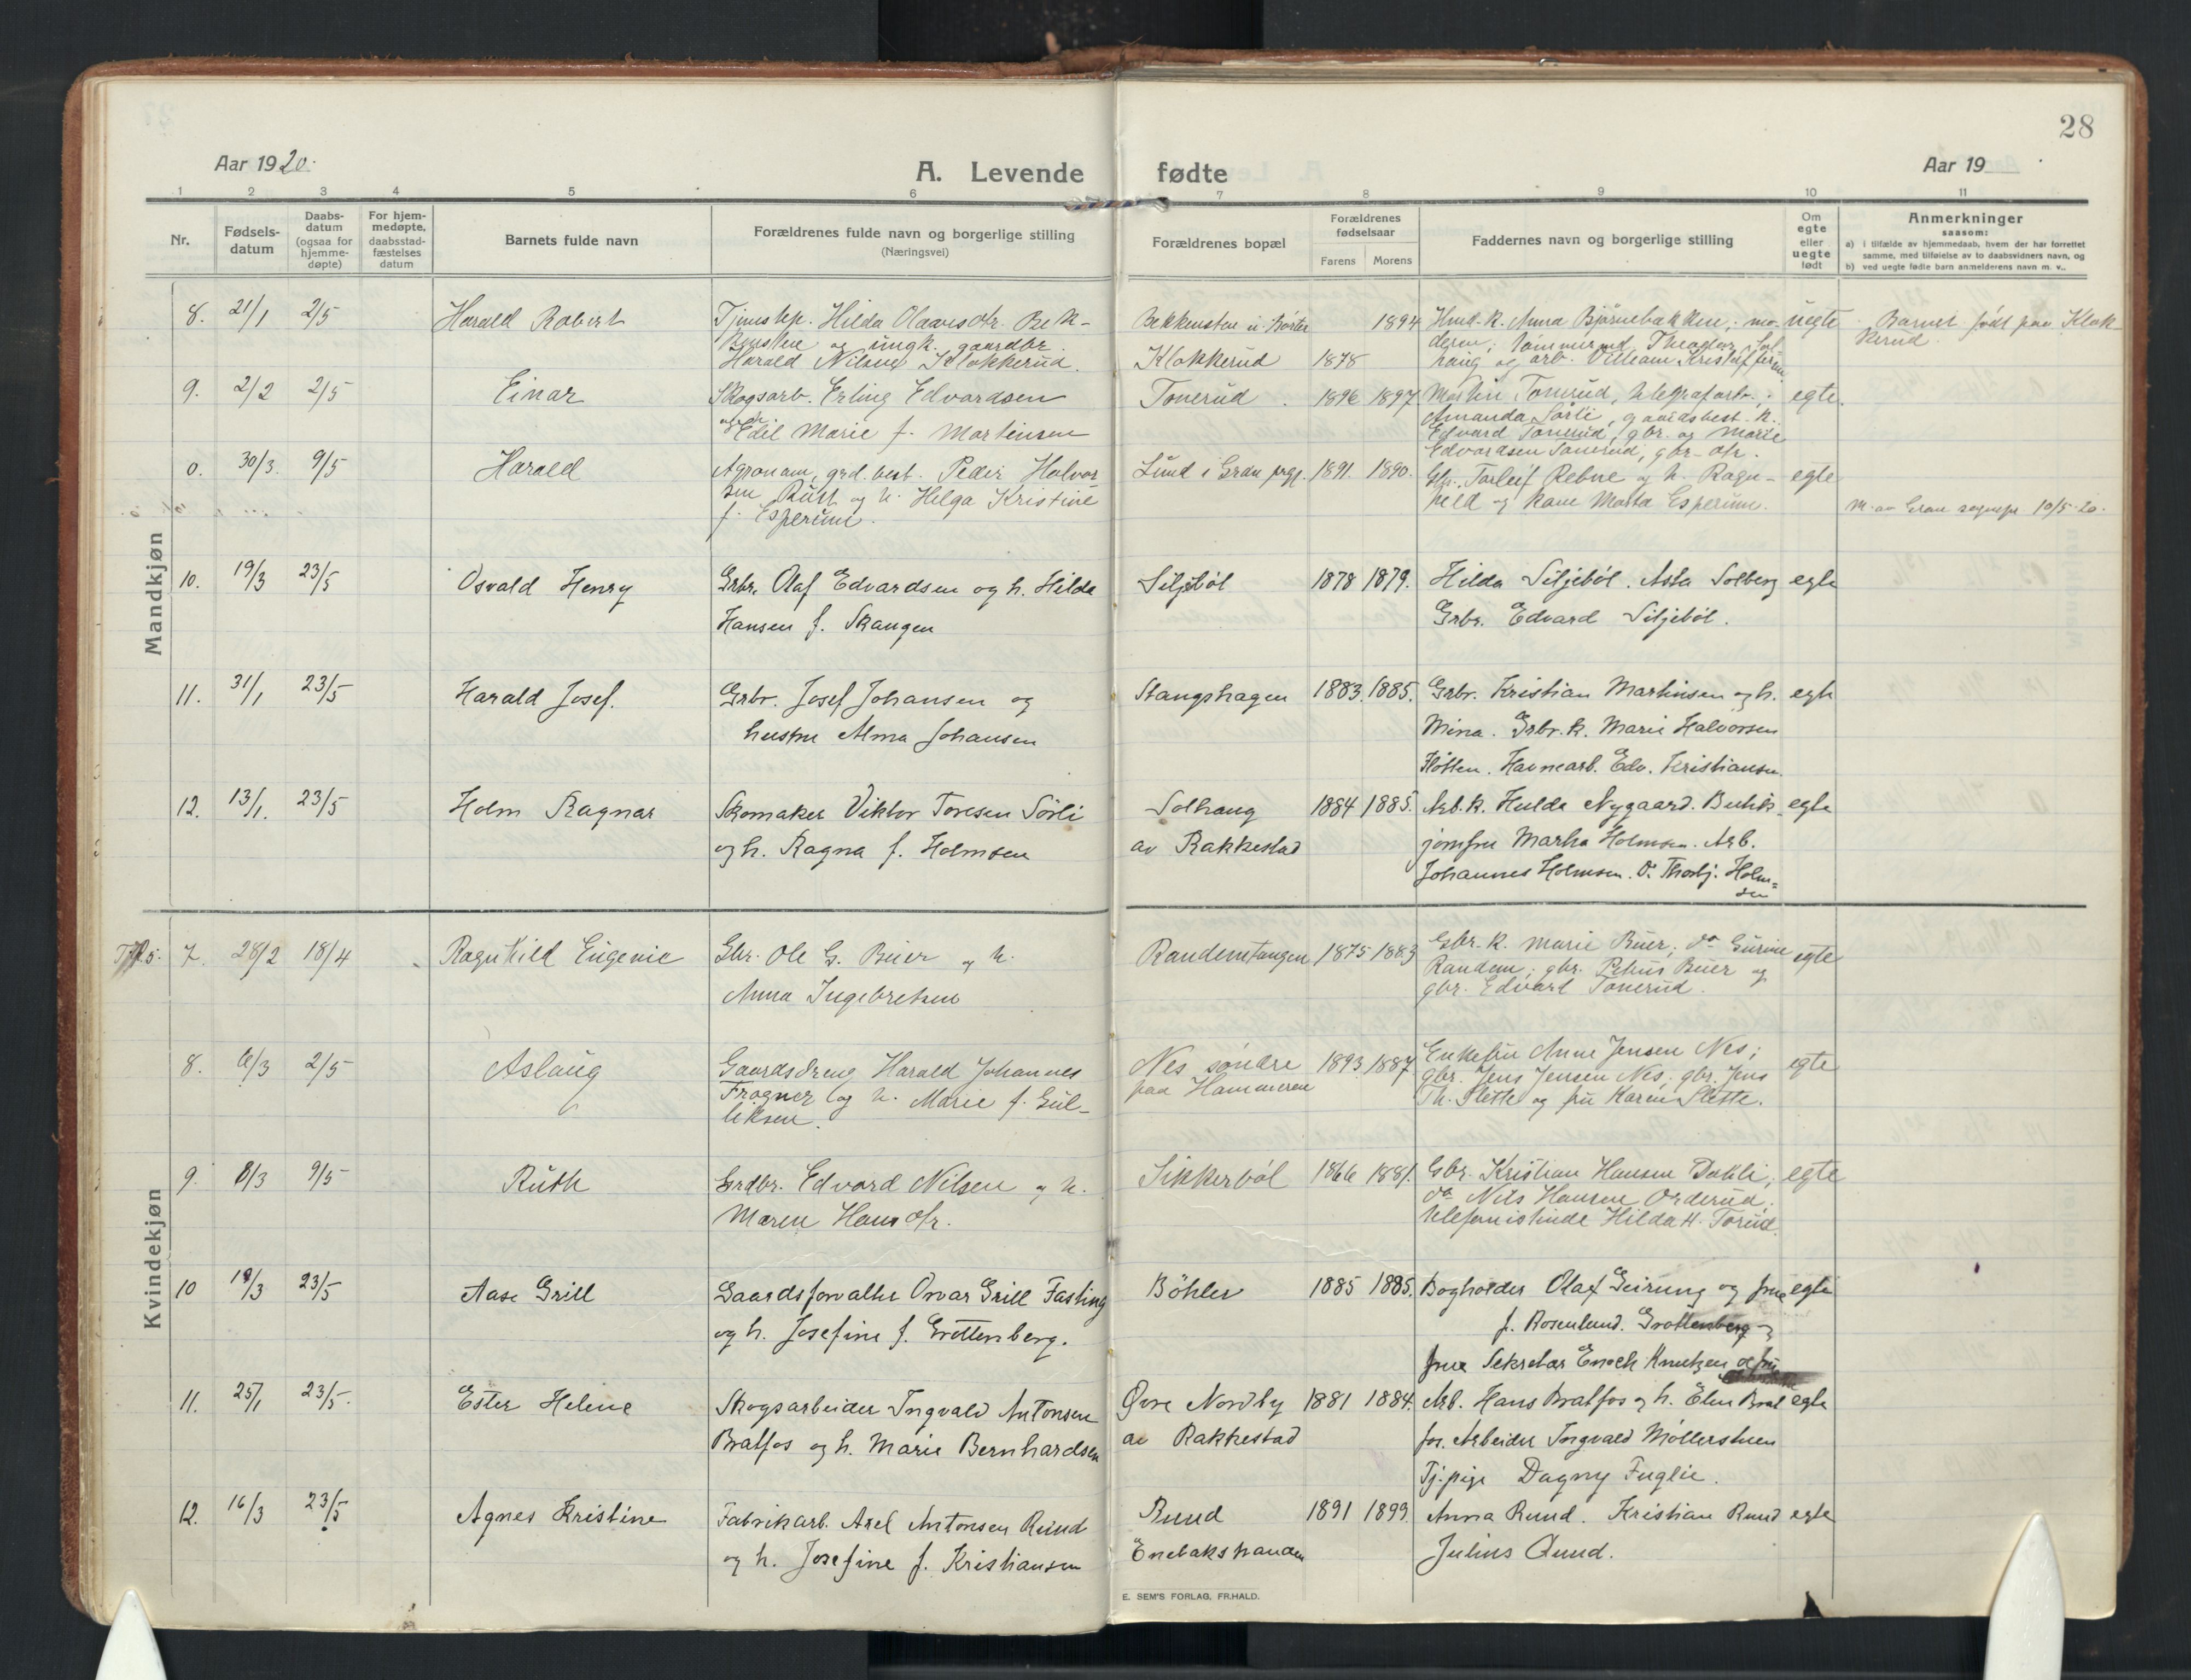 28
Aar 1920.
A. Levende
fødte
Aar 19
1 2 3 4 5 6 7 8 9 10 11
Nr.
Fødsels-
datum
Daabs-
datum
(ogsaa for
hjemme-
døpte)
For hjem-
medøpte,
daabsstad-
fæstelses
datum
Barnets fulde navn
Forældrenes fulde navn og borgerlige stilling
(Næringsvei)
Forældrenes bopæl
Forældrenes
fødselsaar
Farens Morens
Faddernes navn og borgerlige stilling
Om
egte
eller
uegte
født
Anmerkninger
saasom:
a) i tilfælde av hjemmedaab, hvem der har forrettet
samme, med tilføielse av to daabsvidners navn, og
b) ved uegte fødte barn anmelderens navn m. v..
Mandkjøn
8. 21/1 2/5 Harald Robert
Tjenestep. Hilda Olavesdtr. Bek-
kensten og ungk. gaardbr.
Harald Nilsen Klokkerud.
Bekkensten u. Børter 1894
Klokkerud 1878
Hmd.k. Anna Bjørnebakken; mo-
deren; tømmermd. Theodor Sol-
haug og arb. Villiam Kristoffersen
uegte
Barnet født paa Klok-
kerud.
9. 2/2 2/5 Einar
Skogsarb. Erling Edvardsen
og h. Edel Marie f. Martinsen
Tonerud. 1896 1897
Martin Tonerud, telegrafarb.;
Amanda Sørli, gaardsbest. k.
Edvard Tonerud, gbr. og Marie
Edvardsen Tonerud, gbr-dtr.
egte.
0. 30/3. 9/5 Harald
Agronom, grd.best. Peder Halvor
sen Rust og h. Helga Kristine
f. Esperum.
Lund i Gran prgj. 1891. 1890.
Gbr. Torleif Rebne og h. Ragn-
hild og kone Marta Esperum.
egte
M. av Gran sogнepr 10/5-20.
10. 19/3 23/5 Osvald Henry
Grbr. Olaf Edvardsen og h. Hilda
Hansen f. Skaugen
Siljeböl 1878 1879.
Hilda Siljeböl. Asta Solberg
Grbr. Edvard Siljeböl.
egte
11. 31/1 23/5 Harald Josef.
Grbr. Josef Johansen og
hustru Alma Johansen
Stangshagen 1883. 1885.
Grbr. Kristian Martinsen og h.
Mina. Grbr.k. Marie Halvorsen
Fløtten. Havnearb. Edv. Kristiansen.
egte
12. 13/1. 23/5 Holm Ragnar
Skomaker Viktor Toresen Sörli
og h. Ragna f. Holmsen
Solhaug
av Rakkestad
1884 1885.
Arb.k. Hulda Nygaard. Butik-
jomfru Martha Holmsen. Arb.
Johannes Holmsen. Do Thorbj. Holm=
sen
egte
Kvindekjøn
7. 28/2 18/4 Ragnhild Eugenie
Gbr. Ole G. Buer og h.
Anna Ingebretsen
Randemstangen 1875 1883
Gbr.k. Marie Buer; do Gurine
Randem; gbr. Petrus Buer og
gbr. Edvard Tonerud.
egte
8. 6/3 2/5 Aslaug
Gaardsdreng Harald Johannes
Frogner og h. Marie f. Gul-
liksen.
Nes söndre
paa Hammeren
1893 1887
Enkefru Anne Jensen Nes;
gbr. Jens Jensen Nes; gbr. Jens
Th. Slette og fru Karen Slette.
egte
9. 8/3 9/5 Ruth
Grdbr. Edvard Nilsen og h.
Maren Hansdtr.
Sikkerböl 1866 1881.
Gbr. Kristian Hansen Dahli;
do Nils Hansen Orderud;
telefonistinde Hilda H. Torud.
egte
10 18/3 23/5 Aase Grill
Gaardsforvalter Orvar Grill Fasting
og h. Josefine f. Grottenberg.
Böhler 1885 1885.
Bogholder Olaf Geirung og frue
f. Rosenlund. Grottenberg og
frue Sekretær Enoch Knutzen
egte
11. 25/1 23/5. Ester Helene
Skogsarbeider Ingvald Antonsen
Bratfos og h. Marie Bernhardsen
Øvre Nordby
av Rakkestad
1881 1884.
Arb. Hans Bratfos og h. Elen Brat
fos. Arbeider Ingvald Möllerstuen
Tj.pige Dagny Fuglie.
egte
12. 16/3 23/5 Agnes Kristine
Fabrikarb. Axel Antonsen Rund
og h. Josefine f. Kristiansen
Rund
Enebakstranden
1891 1899.
Anna Rund. Kristian Rund
Julius Rund.
egte
E. SEM'S FORLAG, FR.HALD.